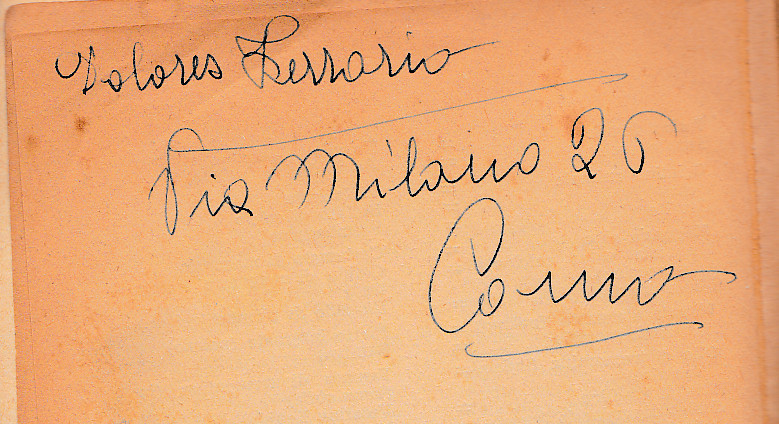 Dolores Ferrario
Via Milano 20
Como